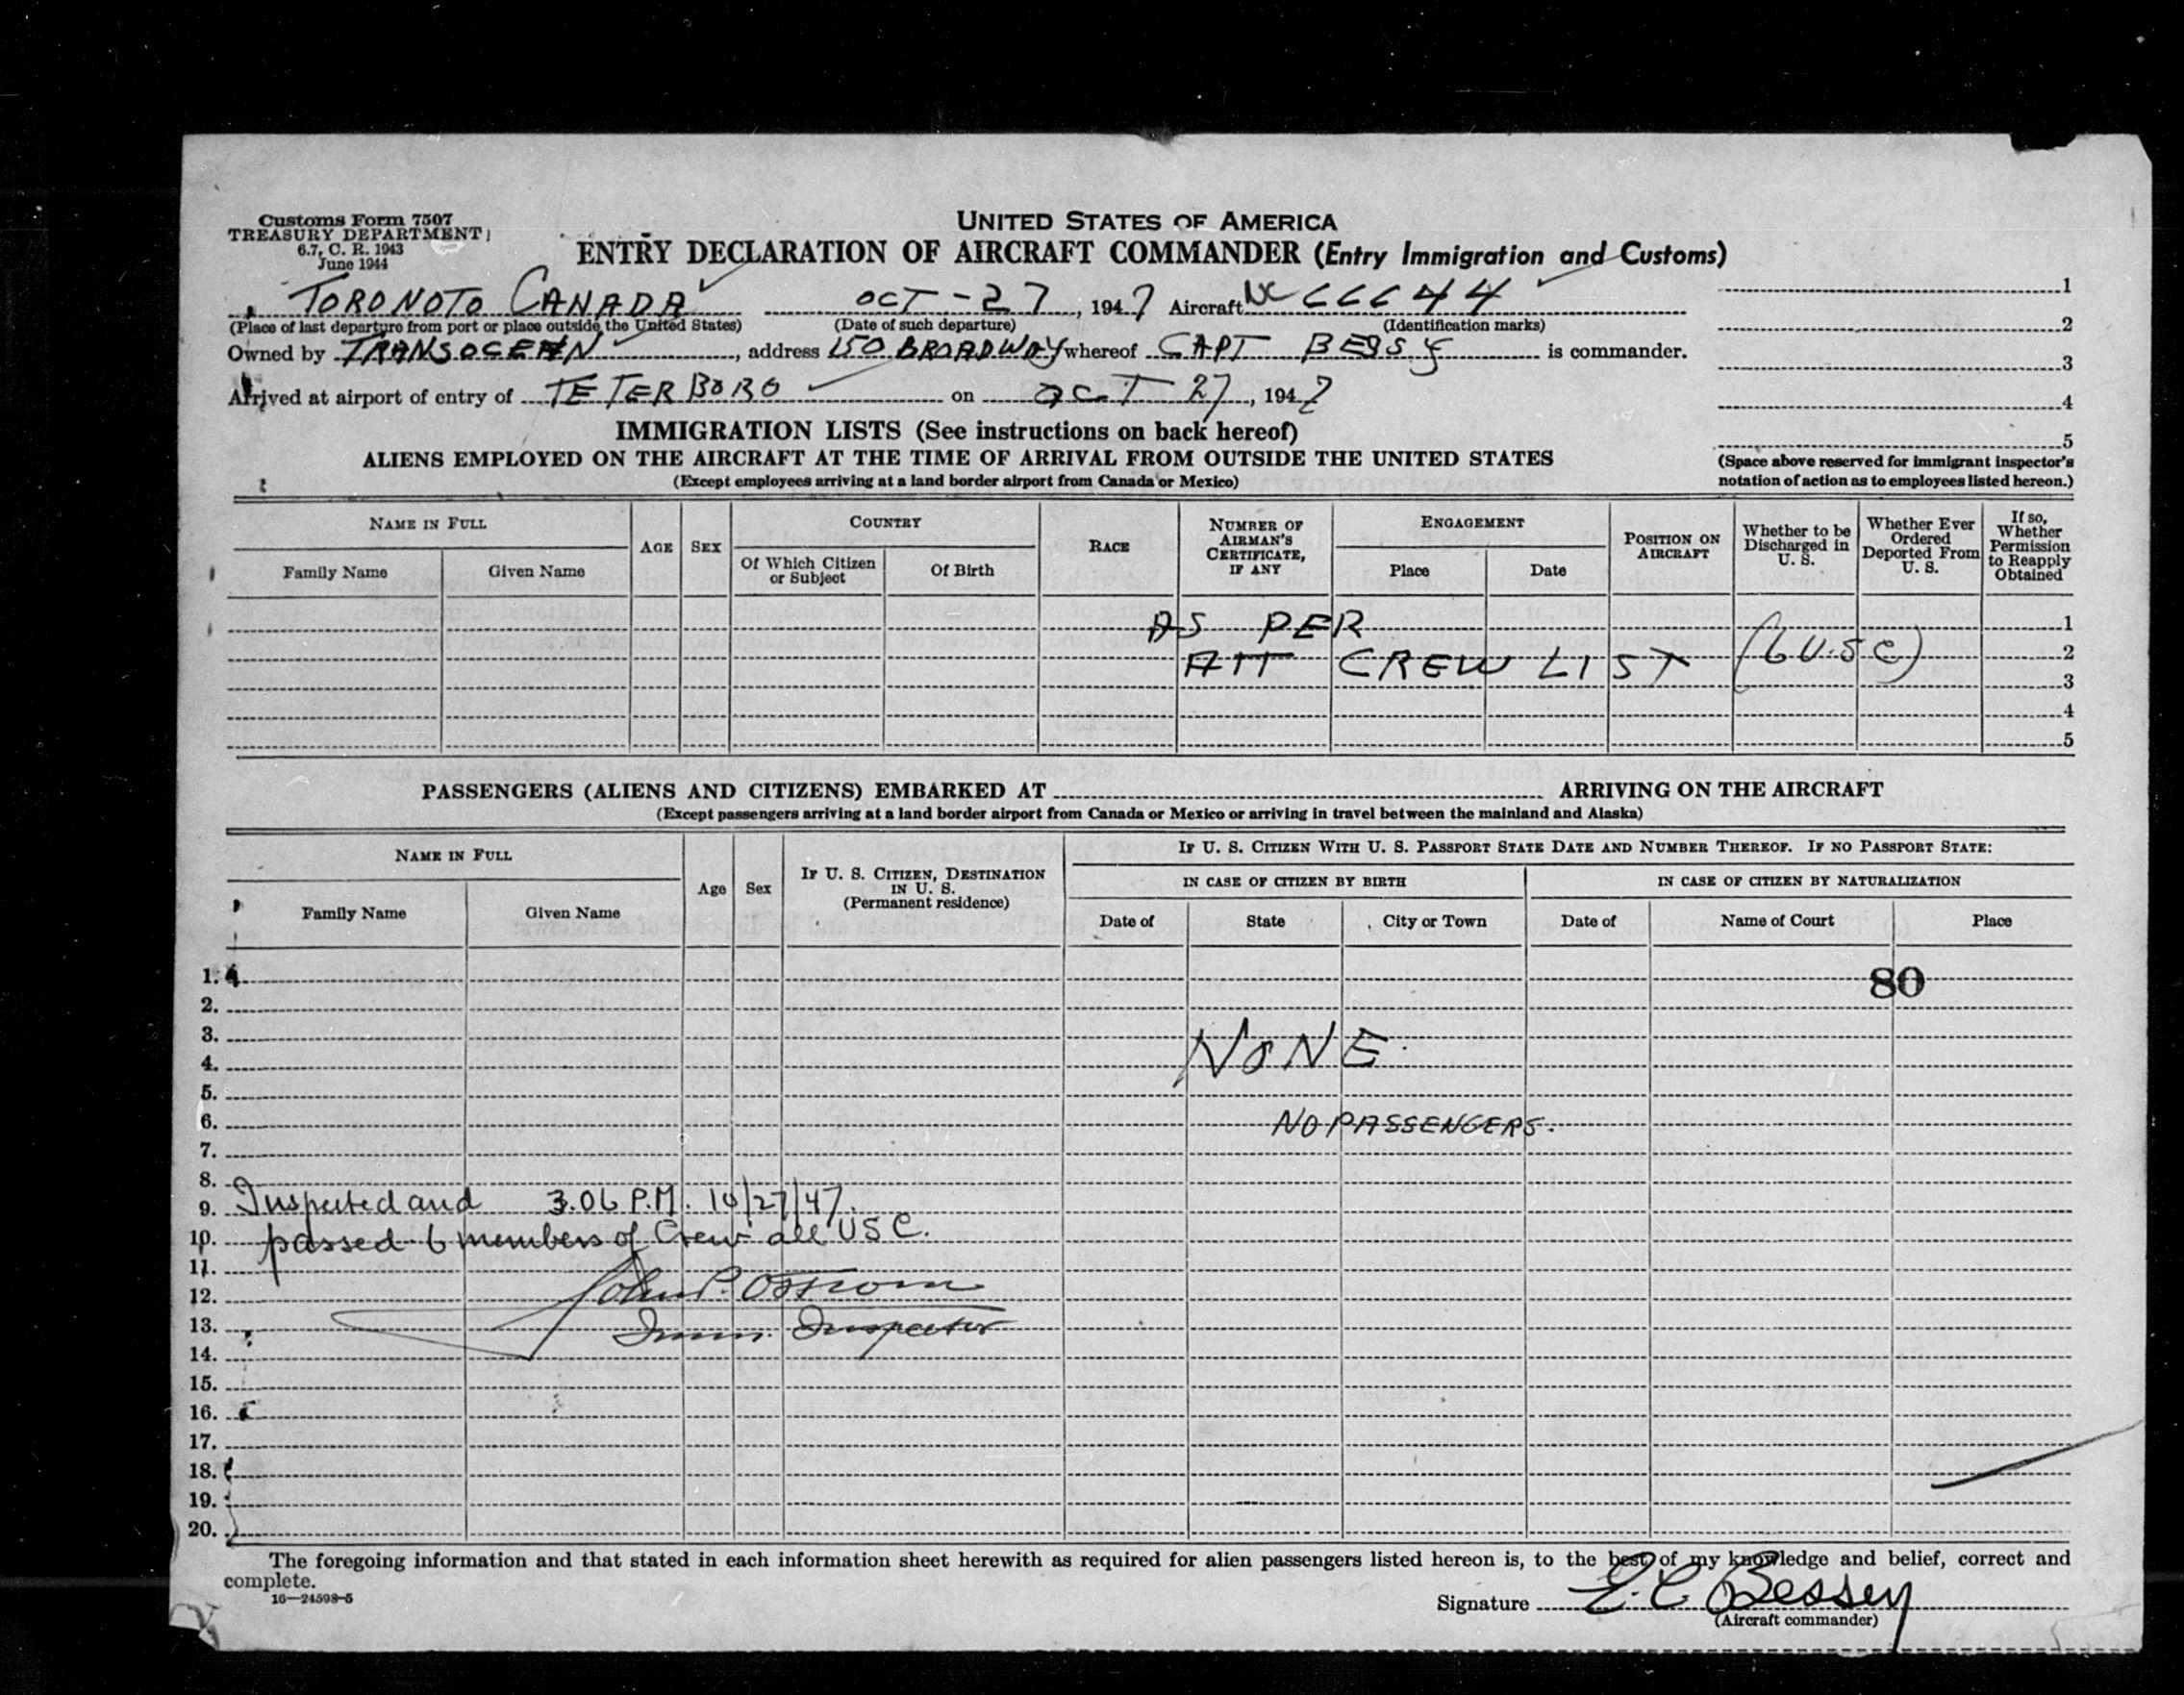 Customs Form 7507
TREASURY DEPARTMENT
6.7, C. R. 1943
June 1944
UNITED STATES OF AMERICA
ENTRY DECLARATION OF AIRCRAFT COMMANDER (Entry Immigration and Customs)
TORONOTO CANADA OCT-27, 1947 Aircraft NC 66644 1
(Place of last departure from port or place outside the United States) (Date of such departure) (Identification marks) 2
Owned by TRANSOCEAN, address 150 BROADWAY whereof CAPT BESSY is commander. 3
Arrived at airport of entry of TETERBORO on OCT 27, 1947 4
IMMIGRATION LISTS (See instructions on back hereof) 5
ALIENS EMPLOYED ON THE AIRCRAFT AT THE TIME OF ARRIVAL FROM OUTSIDE THE UNITED STATES
(Except employees arriving at a land border airport from Canada or Mexico)
(Space above reserved for immigrant inspector's
notation of action as to employees listed hereon.)
NAME IN FULL
Family Name Given Name
AGE SEX
COUNTRY
Of Which Citizen or Subject Of Birth
RACE
NUMBER OF AIRMAN'S CERTIFICATE, IF ANY
ENGAGEMENT
Place Date
POSITION ON AIRCRAFT
Whether to be Discharged in U. S.
Whether Ever Ordered Deported From U. S.
If so, Whether Permission to Reapply Obtained
AS PER 1
ATT CREW LIST (6 U.S.C) 2
3
4
5
PASSENGERS (ALIENS AND CITIZENS) EMBARKED AT ARRIVING ON THE AIRCRAFT
(Except passengers arriving at a land border airport from Canada or Mexico or arriving in travel between the mainland and Alaska)
NAME IN FULL
Family Name Given Name
Age Sex
IF U. S. CITIZEN, DESTINATION IN U. S.
(Permanent residence)
IF U. S. CITIZEN WITH U. S. PASSPORT STATE DATE AND NUMBER THEREOF. IF NO PASSPORT STATE:
IN CASE OF CITIZEN BY BIRTH IN CASE OF CITIZEN BY NATURALIZATION
Date of State City or Town Date of Name of Court Place
1. 80
2.
3. NONE
4.
5.
6. NO PASSENGERS.
7.
8.
9. Inspected and 3.06 P.M. 10/27/47.
10. passed 6 members of Crew all USC.
11.
12. John P. Ossrom
13. Imm. Inspector
14.
15.
16.
17.
18.
19.
20.
The foregoing information and that stated in each information sheet herewith as required for alien passengers listed hereon is, to the best of my knowledge and belief, correct and
complete.
16—24598-5
Signature E. C. Bessey
(Aircraft commander)